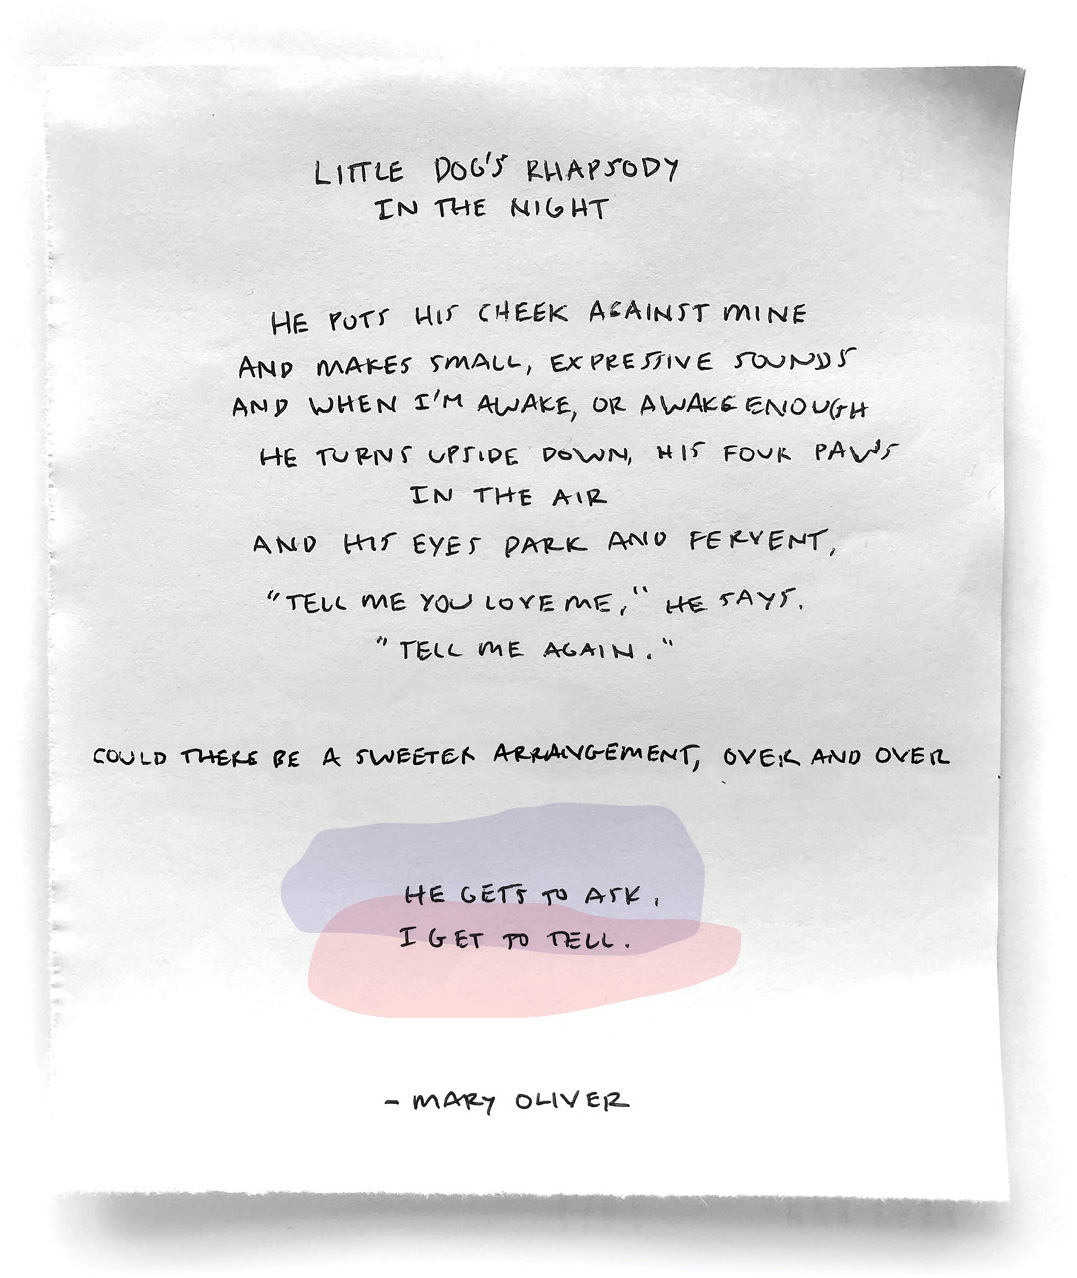 LITTLE DOG'S RHAPSODY
IN THE NIGHT
HE PUTS HIS CHEEK AGAINST MINE
AND MAKES SMALL, EXPRESSIVE SOUNDS
AND WHEN I'M AWAKE, OR AWAKE ENOUGH
HE TURNS UPSIDE DOWN, HIS FOUR PAWS
IN THE AIR
AND HIS EYES DARK AND FERVENT,
"TELL ME YOU LOVE ME," HE SAYS.
"TELL ME AGAIN."
COULD THERE BE A SWEETER ARRANGEMENT, OVER AND OVER
HE GETS TO ASK,
I GET TO TELL.
- MARY OLIVER